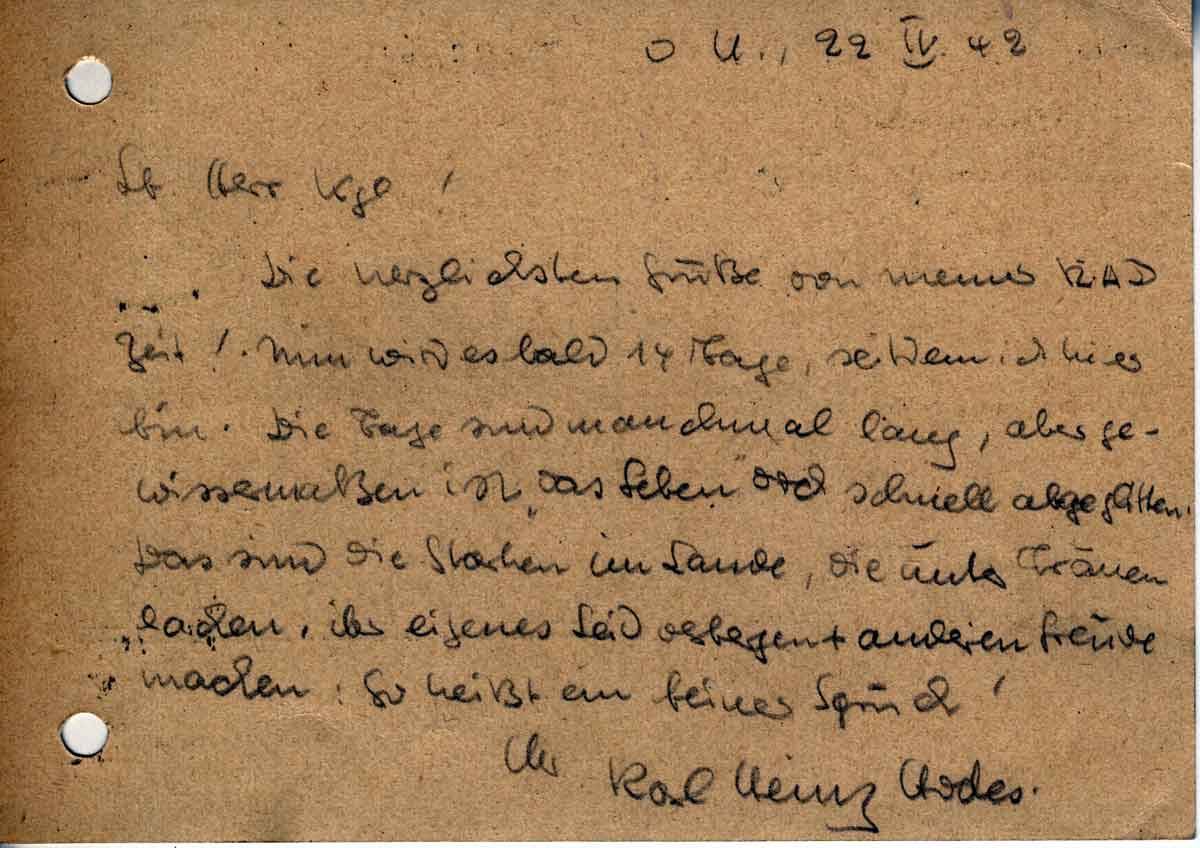 O U., 22 IV. 42
Lb Herr Kge!
Die herzlichsten Grüße von meiner RAD
Zeit! Nun wird es bald 14 Tage, seitdem ich hier
bin. Die Tage sind manchmal lang, aber ge-
wissermaßen ist „das Leben" doch schnell abgeglitten.
Das sind die Starken im Lande, die unter Tränen
lachen, ihr eigenes Leid verbergen + anderen Freude
machen! So heißt ein feiner Spruch!
Ihr Karl Heinz Hodes.